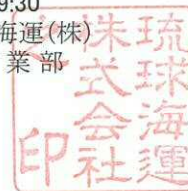 9:30
海運(株)
業部
琉球海運
株式会社
印